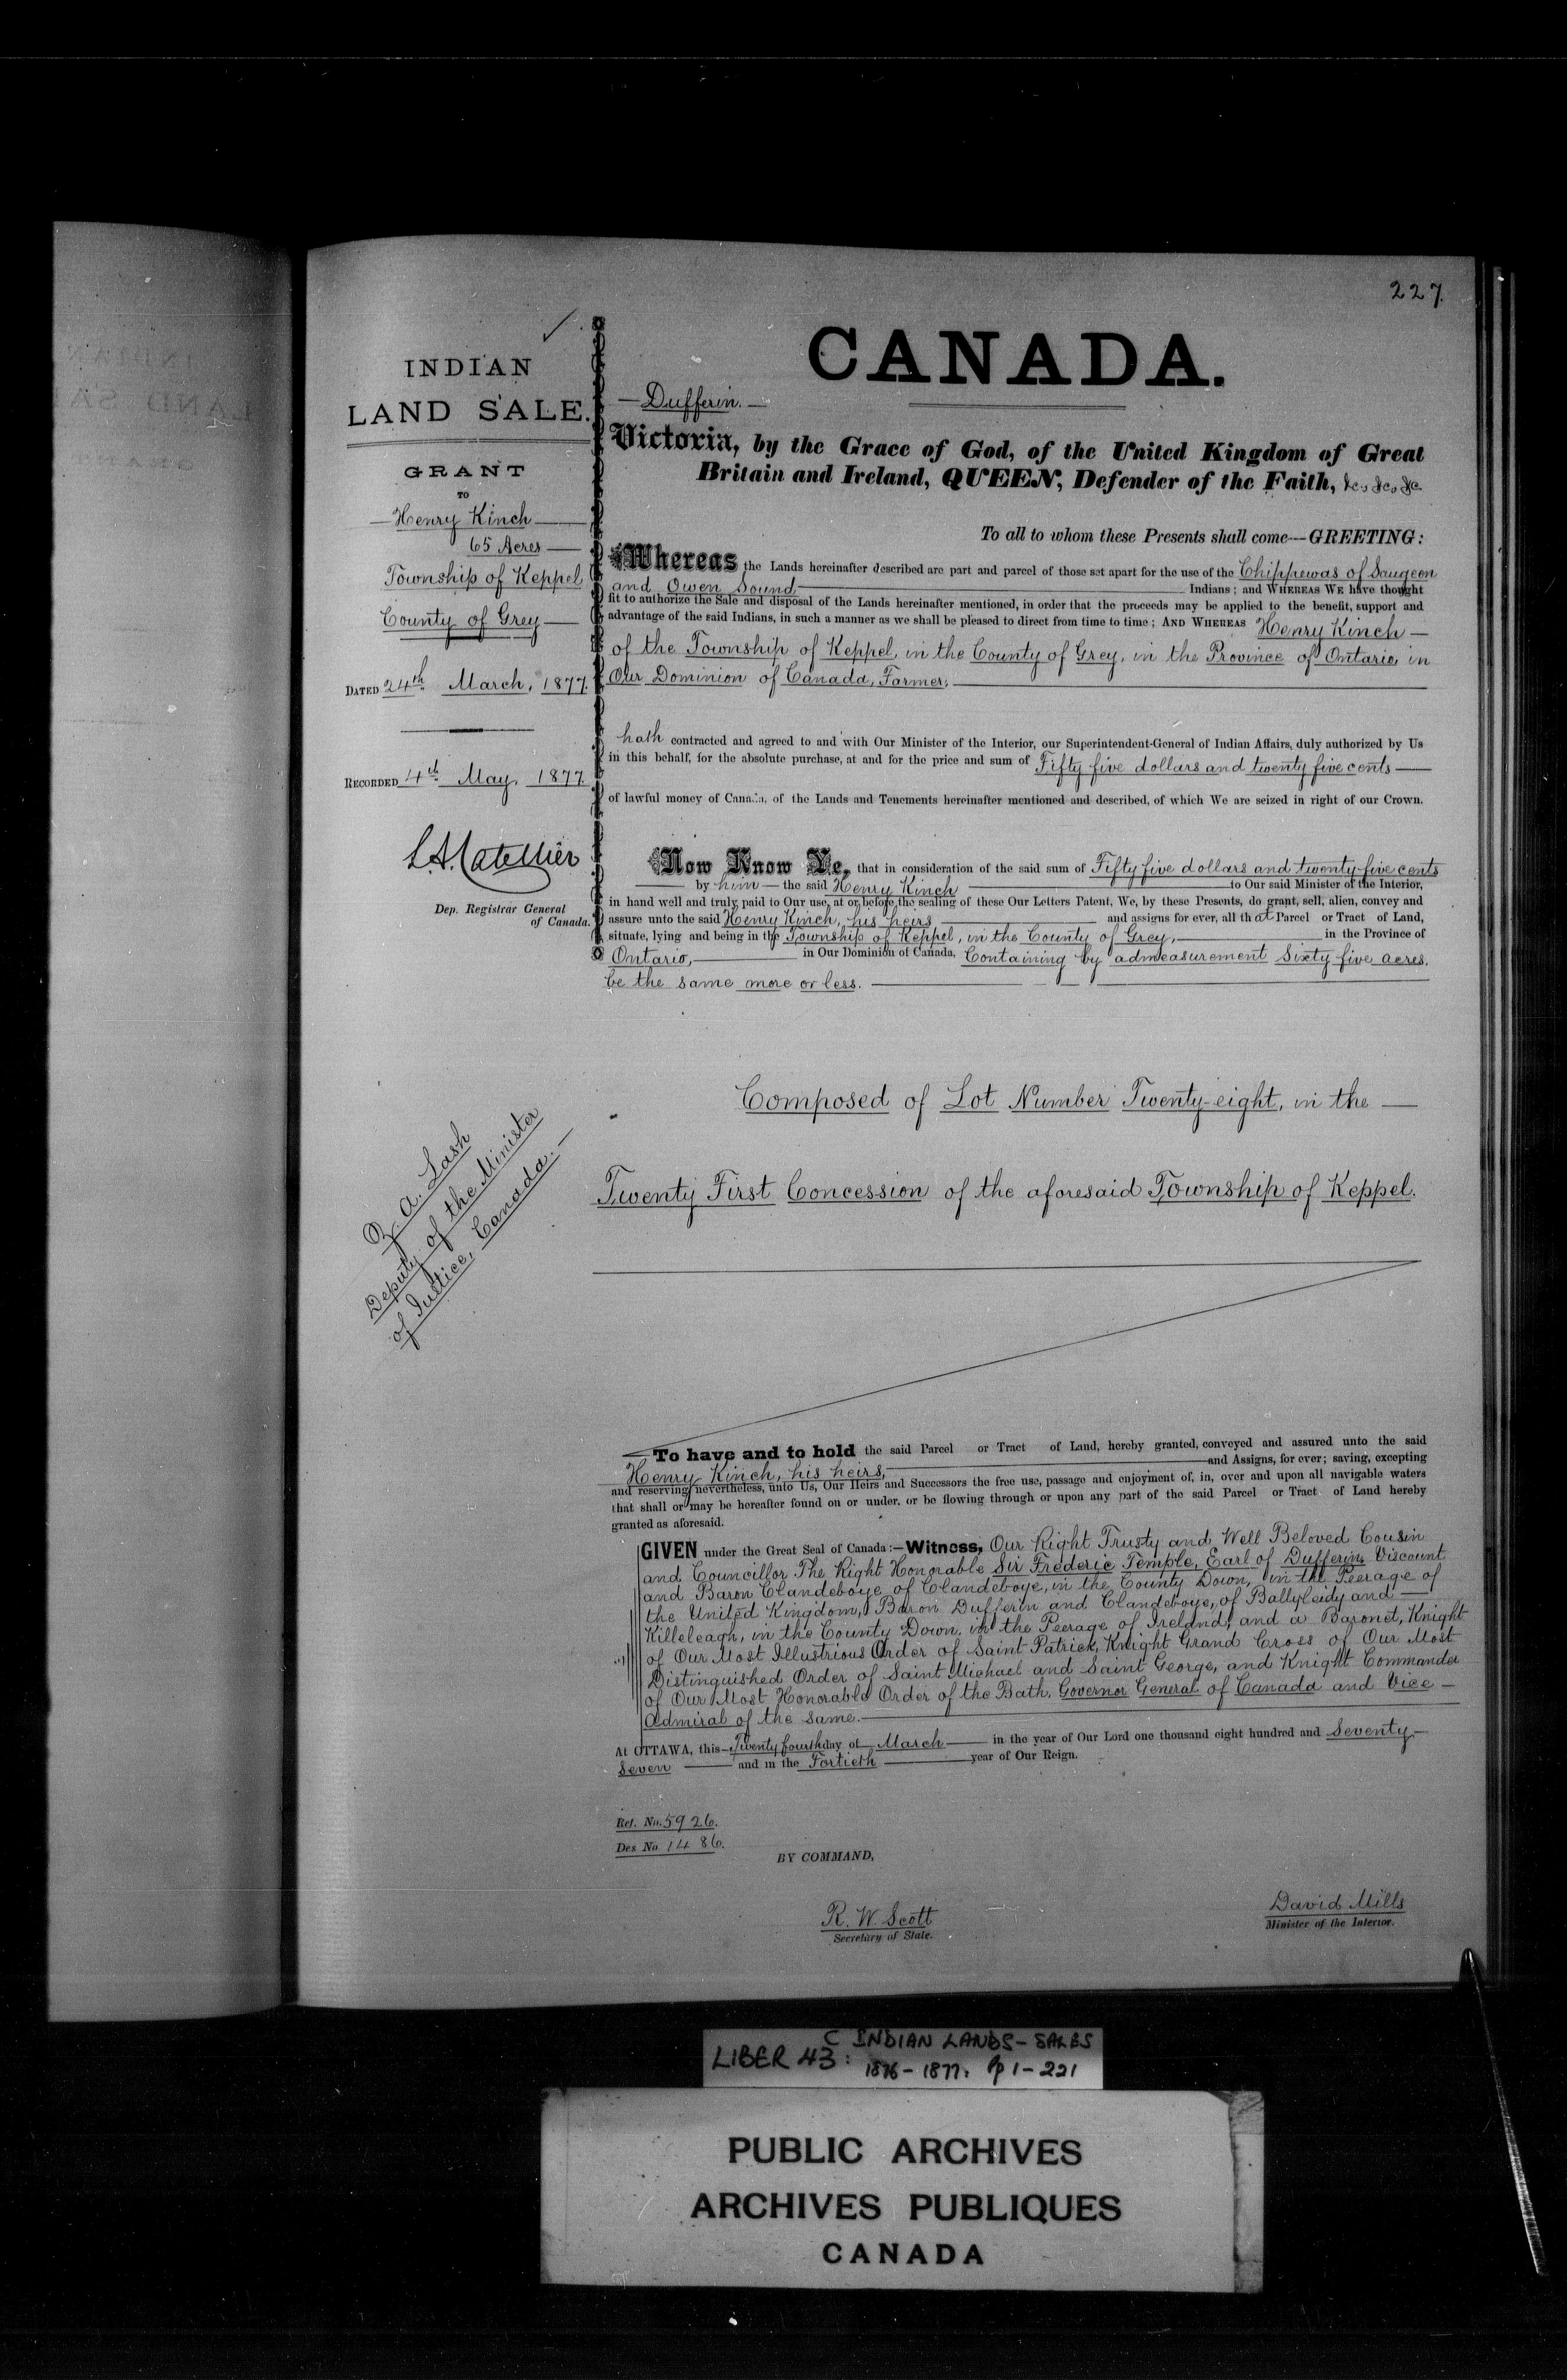 227.
INDIAN
LAND SALE.
GRANT
TO
Henry Kinch
65 Acres
Township of Keppel
County of Grey
DATED 24th March, 1877.
RECORDED 4th May, 1877.
L. A. Catellier
Dep. Registrar General
of Canada.
Z. A. Lash
Deputy of the Minister
of Justice, Canada.
CANADA.
Dufferin.
Victoria, by the Grace of God, of the United Kingdom of Great
Britain and Ireland, QUEEN, Defender of the Faith, &c, &c, &c
To all to whom these Presents shall come---GREETING:
Whereas the Lands hereinafter described are part and parcel of those set apart for the use of the Chippewas of Saugeen
and Owen Sound Indians; and WHEREAS WE have thought
fit to authorize the Sale and disposal of the Lands hereinafter mentioned, in order that the proceeds may be applied to the benefit, support and
advantage of the said Indians, in such a manner as we shall be pleased to direct from time to time; AND WHEREAS Henry Kinch
of the Township of Keppel, in the County of Grey, in the Province of Ontario, in
Our Dominion of Canada, Farmer,
hath contracted and agreed to and with Our Minister of the Interior, our Superintendent-General of Indian Affairs, duly authorized by Us
in this behalf, for the absolute purchase, at and for the price and sum of Fifty five dollars and twenty five cents
of lawful money of Canada, of the Lands and Tenements hereinafter mentioned and described, of which We are seized in right of our Crown.
Now Know Ye, that in consideration of the said sum of Fifty five dollars and twenty five cents
by him the said Henry Kinch to Our said Minister of the Interior,
in hand well and truly paid to Our use, at or before the sealing of these Our Letters Patent, We, by these Presents, do grant, sell, alien, convey and
assure unto the said Henry Kinch, his heirs and assigns for ever, all that Parcel or Tract of Land,
situate, lying and being in the Township of Keppel, in the County of Grey, in the Province of
Ontario, in Our Dominion of Canada, Containing by admeasurement Sixty five acres,
be the same more or less.
Composed of Lot Number Twenty-eight, in the
Twenty First Concession of the aforesaid Township of Keppel.
To have and to hold the said Parcel or Tract of Land, hereby granted, conveyed and assured unto the said
Henry Kinch, his heirs, and Assigns, for ever; saving, excepting
and reserving nevertheless, unto Us, Our Heirs and Successors the free use, passage and enjoyment of, in, over and upon all navigable waters
that shall or may be hereafter found on or under, or be flowing through or upon any part of the said Parcel or Tract of Land hereby
granted as aforesaid.
GIVEN under the Great Seal of Canada:—Witness, Our Right Trusty and Well Beloved Cousin
and Councillor The Right Honorable Sir Frederic Temple, Earl of Dufferin, Viscount
and Baron Clandeboye of Clandeboye, in the County Down, in the Peerage of
the United Kingdom, Baron Dufferin and Clandeboye, of Ballyleidy and
Killeleagh, in the County Down, in the Peerage of Ireland, and a Baronet, Knight
of Our Most Illustrious Order of Saint Patrick, Knight Grand Cross of Our Most
Distinguished Order of Saint Michael and Saint George, and Knight Commander
of Our Most Honorable Order of the Bath, Governor General of Canada and Vice
Admiral of the same.
At OTTAWA, this Twenty fourth day of March in the year of Our Lord one thousand eight hundred and Seventy
Seven and in the Fortieth year of Our Reign.
Ref. No. 5926.
Des No 1486.
BY COMMAND,
R. W. Scott
Secretary of State.
David Mills
Minister of the Interior.
LIBER 43: C INDIAN LANDS - SALES
1876 - 1877. pp 1 - 221
PUBLIC ARCHIVES
ARCHIVES PUBLIQUES
CANADA